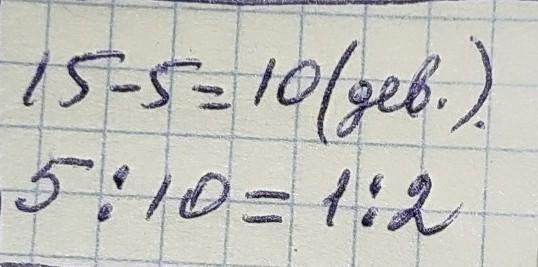 15-5=10(дев.).
5:10=1:2